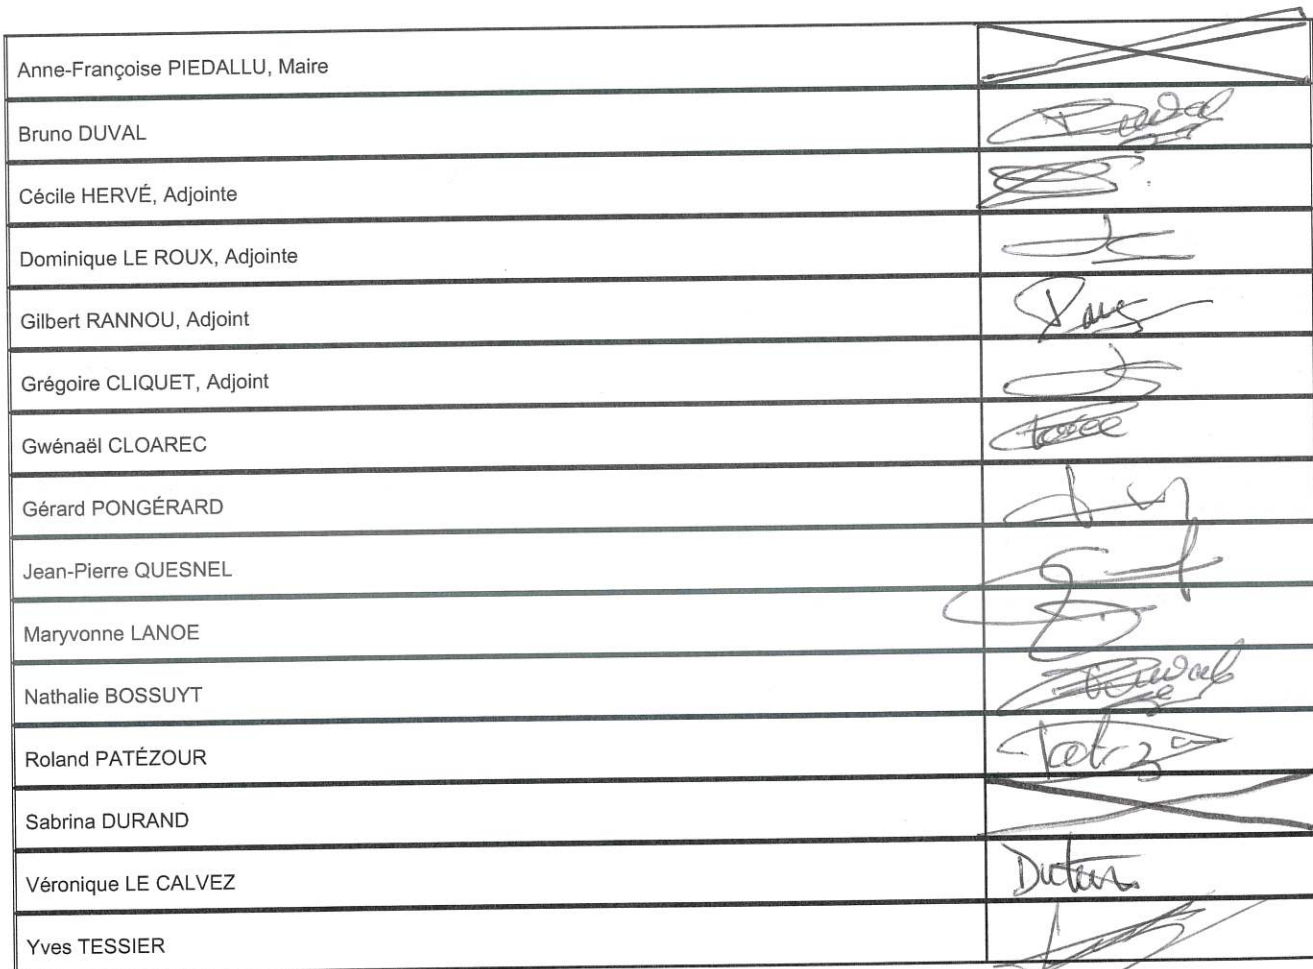 Anne-Françoise PIEDALLU, Maire
Bruno DUVAL
Duval
Cécile HERVÉ, Adjointe
Dominique LE ROUX, Adjointe
Gilbert RANNOU, Adjoint
Grégoire CLIQUET, Adjoint
Gwénaël CLOAREC
Gérard PONGÉRARD
Jean-Pierre QUESNEL
Maryvonne LANOE
Nathalie BOSSUYT
Roland PATÉZOUR
Sabrina DURAND
Véronique LE CALVEZ
Yves TESSIER